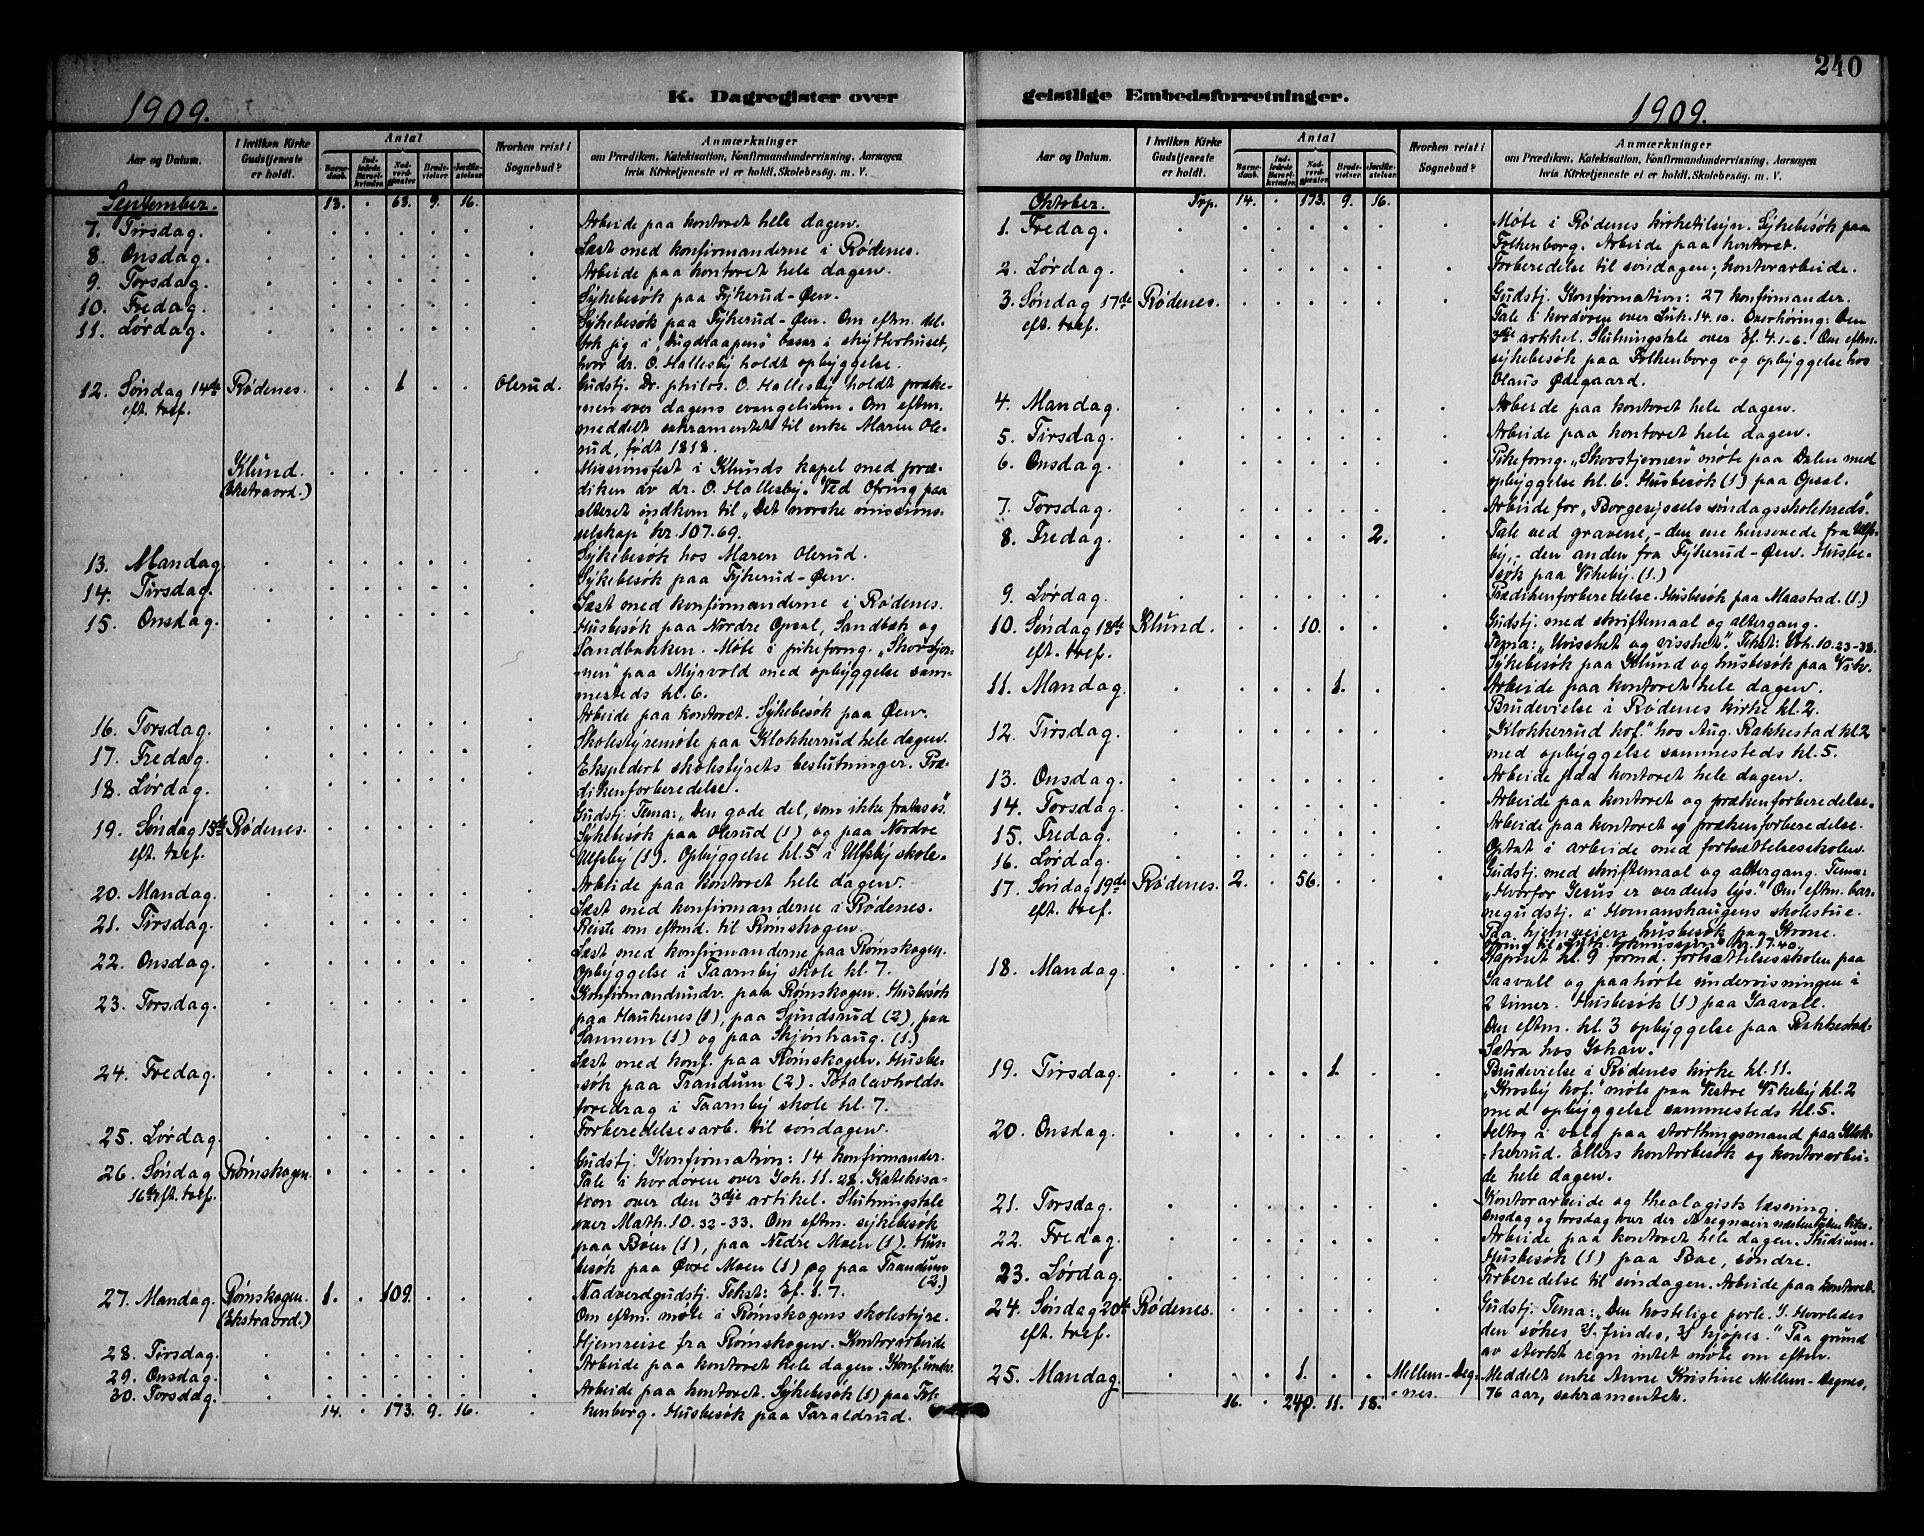 240
K. Dagregister over
geistlige Embedsforretninger.
1909.
1909.
Aar og Datum.
I hvilken Kirke Gudstjeneste er holdt.
Antal
Barnedaab.
Indledede Barselkvinder.
Nadverdgjæster
Brudevielser.
Jordfæstelser.
Hvorhen reist i Sognebud?
Anmærkninger
om Prædiken, Katekisation, Konfirmandundervisning, Aarsagen
hvis Kirketjeneste ei er holdt, Skolebesøg m. V.
September. 13. . 63. 9. 16.
7. Tirsdag. Arbeide paa kontoret hele dagen.
8. Onsdag. Læst med konfirmanderne i Rødenes.
9. Torsdag. Arbeide paa kontoret hele dagen.
10. Fredag. Sykebesøk paa Fykerud-Øen.
11. Lørdag. Sykebesøk paa Fykerud-Øen. Om eftm. del-
tok jeg i "Lugdraapens" basar i skytterhuset,
hvor dr. O. Hallesby holdt opbyggelse.
12. Søndag 14de Rødenes. 1. Olerud. Gudstj. Dr. philos. O. Hallesby holdt præke-
eft. tref. nen over dagens evangelium. Om eftm.
meddelt sakramentet til enke Maren Ole-
rud, født 1818.
Klund. Missionsfest i Klunds kapel med præ-
(Ekstraord.) diken av dr. O. Hallesby. Ved ofring paa
alteret indkom til "Det norske missions-
selskap" kr. 107.69.
13. Mandag. Sykebesøk hos Maren Olerud.
14. Tirsdag. Sykebesøk paa Fykerud-Øen.
Læst med konfirmanderne i Rødenes.
15. Onsdag. Husbesøk paa Nordre Opsal, Sandbæk og
Sandbakken. Møte i pikeforng. "Skovstjer-
nen" paa Myrvold med opbyggelse sam-
mesteds kl. 6.
16. Torsdag. Arbeide paa kontoret. Sykebesøk paa Øen.
17. Fredag. Skolestyremøte paa Klokkerrud hele dagen.
18. Lørdag. Ekspedert skolestyrets beslutninger. Præ-
dikenforberedelse.
19. Søndag 15de Rødenes. Gudstj. Tema: "Den gode del, som ikke fratages".
eft. tref. Sykebesøk paa Olerud (1) og paa Nordre
Ulfsby (1). Opbyggelse kl. 5 i Ulfsby skole.
20. Mandag. Arbeide paa kontoret hele dagen.
21. Tirsdag. Læst med konfirmanderne i Rødenes.
Reiste om eftmd. til Rømskogen.
22. Onsdag. Læst med konfirmanderne paa Rømskogen.
Opbyggelse i Taarnby skole kl. 7.
23. Torsdag. Konfirmandundv. paa Rømskogen. Husbesøk
paa Haukenes (1), paa Sundsrud (2), paa
Sannem (1) og paa Skjønhaug. (1.)
24. Fredag. Læst med konf. paa Rømskogen. Husbe-
søk paa Trandum (2). Totalavholds-
foredrag i Taarnby skole kl. 7.
25. Lørdag. Forberedelsesarb. til søndagen.
26. Søndag Rømskogen. Gudstj. Konfirmation: 14 konfirmander.
16de eft. tref. Tale i kordøren over Joh. 11.28. Katekisa-
tion over den 3die artikel. Slutningstale
over Math. 10.32-33. Om eftm. sykebesøk
paa Bøen (1), paa Nedre Moen (1). Hus-
besøk paa Øvre Moen (1) og paa Trandum
(2.)
27. Mandag. Rømskogen 1. . 109. Nadverdgudstj. Tekst: Ef. 1.7.
(Ekstraord.) Om eftm. møte i Rømskogens skolestyre.
28. Tirsdag. Hjemreise fra Rømskogen. Kontorarbeide
29. Onsdag. Arbeide paa kontoret hele dagen. Konf.undv.
30. Torsdag. Arbeide paa kontoret. Sykebesøk (1) paa Fol-
14. . 173. 9. 16. kenborg. Husbesøk paa Taraldrud.
Aar og Datum.
I hvilken Kirke Gudstjeneste er holdt.
Antal
Barnedaab.
Indledede Barselkvinder.
Nadverdgjæster
Brudevielser.
Jordfæstelser.
Hvorhen reist i Sognebud?
Anmærkninger
om Prædiken, Katekisation, Konfirmandundervisning, Aarsagen
hvis Kirketjeneste ei er holdt, Skolebesøg m. V.
Oktober. Trp. 14. . 173. 9. 16.
1. Fredag. Møte i Rødenes kirketilsyn. Sykebesøk paa
Folkenborg. Arbeide paa kontoret.
2. Lørdag. Forberedelse til søndagen; kontorarbeide.
3. Søndag 17de Rødenes. Gudstj. Konfirmation: 27 konfirmander.
eft. tref. Tale i kordøren over Luk. 14.10. Overhøring: Den
3die artikkel. Slutningstale over Ef. 4.1-6. Om eftm.
sykebesøk paa Folkenborg og opbyggelse hos
Olaus Ødegaard.
4. Mandag. Arbeide paa kontoret hele dagen.
5. Tirsdag. Arbeide paa kontoret hele dagen.
6. Onsdag. Pikeforng. "Skovstjernen" møte paa Dalen med
opbyggelse kl. 6. Husbesøk (1) paa Opsal.
7. Torsdag. Arbeide for "Borgesyssels søndagsskolekreds".
8. Fredag. 2. Tale ved gravene, - den ene hensovede fra Ulfs-
by, - den anden fra Fykerud-Øen. Husbe-
søk paa Vikeby. (1.)
9. Lørdag. Prædikenforberedelse. Husbesøk paa Maastad. (1.)
10. Søndag 18de Klund. 10. Gudstj. med skriftemaal og altergang.
eft. tref. Tema: "Uvisshet og visshet". Tekst: Joh. 10.23-38.
Sykebesøk paa Klund og husbesøk paa Vik.
11. Mandag. 1. Arbeide paa kontoret hele dagen.
Brudevielse i Rødenes kirke kl. 2.
12. Tirsdag. "Klokkerrud kof." hos Aug. Rakkestad kl. 2
med opbyggelse sammesteds kl. 5.
13. Onsdag. Arbeide paa kontoret hele dagen.
14. Torsdag. Arbeide paa kontoret og prækenforberedelse.
15. Fredag. Arbeide paa kontoret og prækenforberedelse.
16. Lørdag. Optat i arbeide med fortsættelsesskolen.
17. Søndag 19de Rødenes. 2. . 56. Gudstj. med skriftemaal og altergang. Tema:
eft. tref. "Hvorfor Jesus er verdens lys." Om eftm. bar-
negudstj. i Homanshaugens skolestue.
Paa hjemveien husbesøk paa Krone.
Ofring til "Luth. folkmissjon" kr. 17.40.
18. Mandag. Aapnet kl. 9 formd. fortsættelsesskolen paa
Gaavall og paahørte undervisningen i
2 timer. Husbesøk (1) paa Gaavall.
Om eftm. kl. 3 opbyggelse paa Rakkestad-
Sætra hos Johan.
19. Tirsdag. 1. Brudevielse i Rødenes kirke kl. 11.
"Krosby kof." møte paa Vestre Vikeby kl. 2
med opbyggelse sammesteds kl. 5.
20. Onsdag. Deltog i valg paa storthingsmand paa Klok-
kerrud. Ellers kontorbesøk og kontorarbei-
de hele dagen.
21. Torsdag. Kontorarbeide og theologisk læsning.
Onsdag og torsdag var der et regnveir næsten uten like.
22. Fredag. Arbeide paa kontoret hele dagen. Studium.
Husbesøk (1) paa Boe, søndre.
23. Lørdag. Forberedelse til søndagen. Arbeide paa kontoret.
24. Søndag 20de Rødenes. Gudstj. Tema: "Den kostelige perle. 1. Hvorledes
eft. tref. den søkes 2. findes, 3. kjøpes." Paa grund
av sterkt regn intet møte om eftm.
25. Mandag. 1. Mellem-Deg- Meddelt enke Anne Kristine Mellem-Degnes,
nes. 76 aar, sakramentet.
16. . 240. 11. 18.